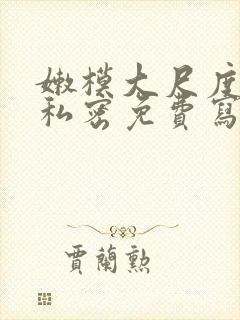 嫩模大尺度
私密免費寫
賈蘭勲